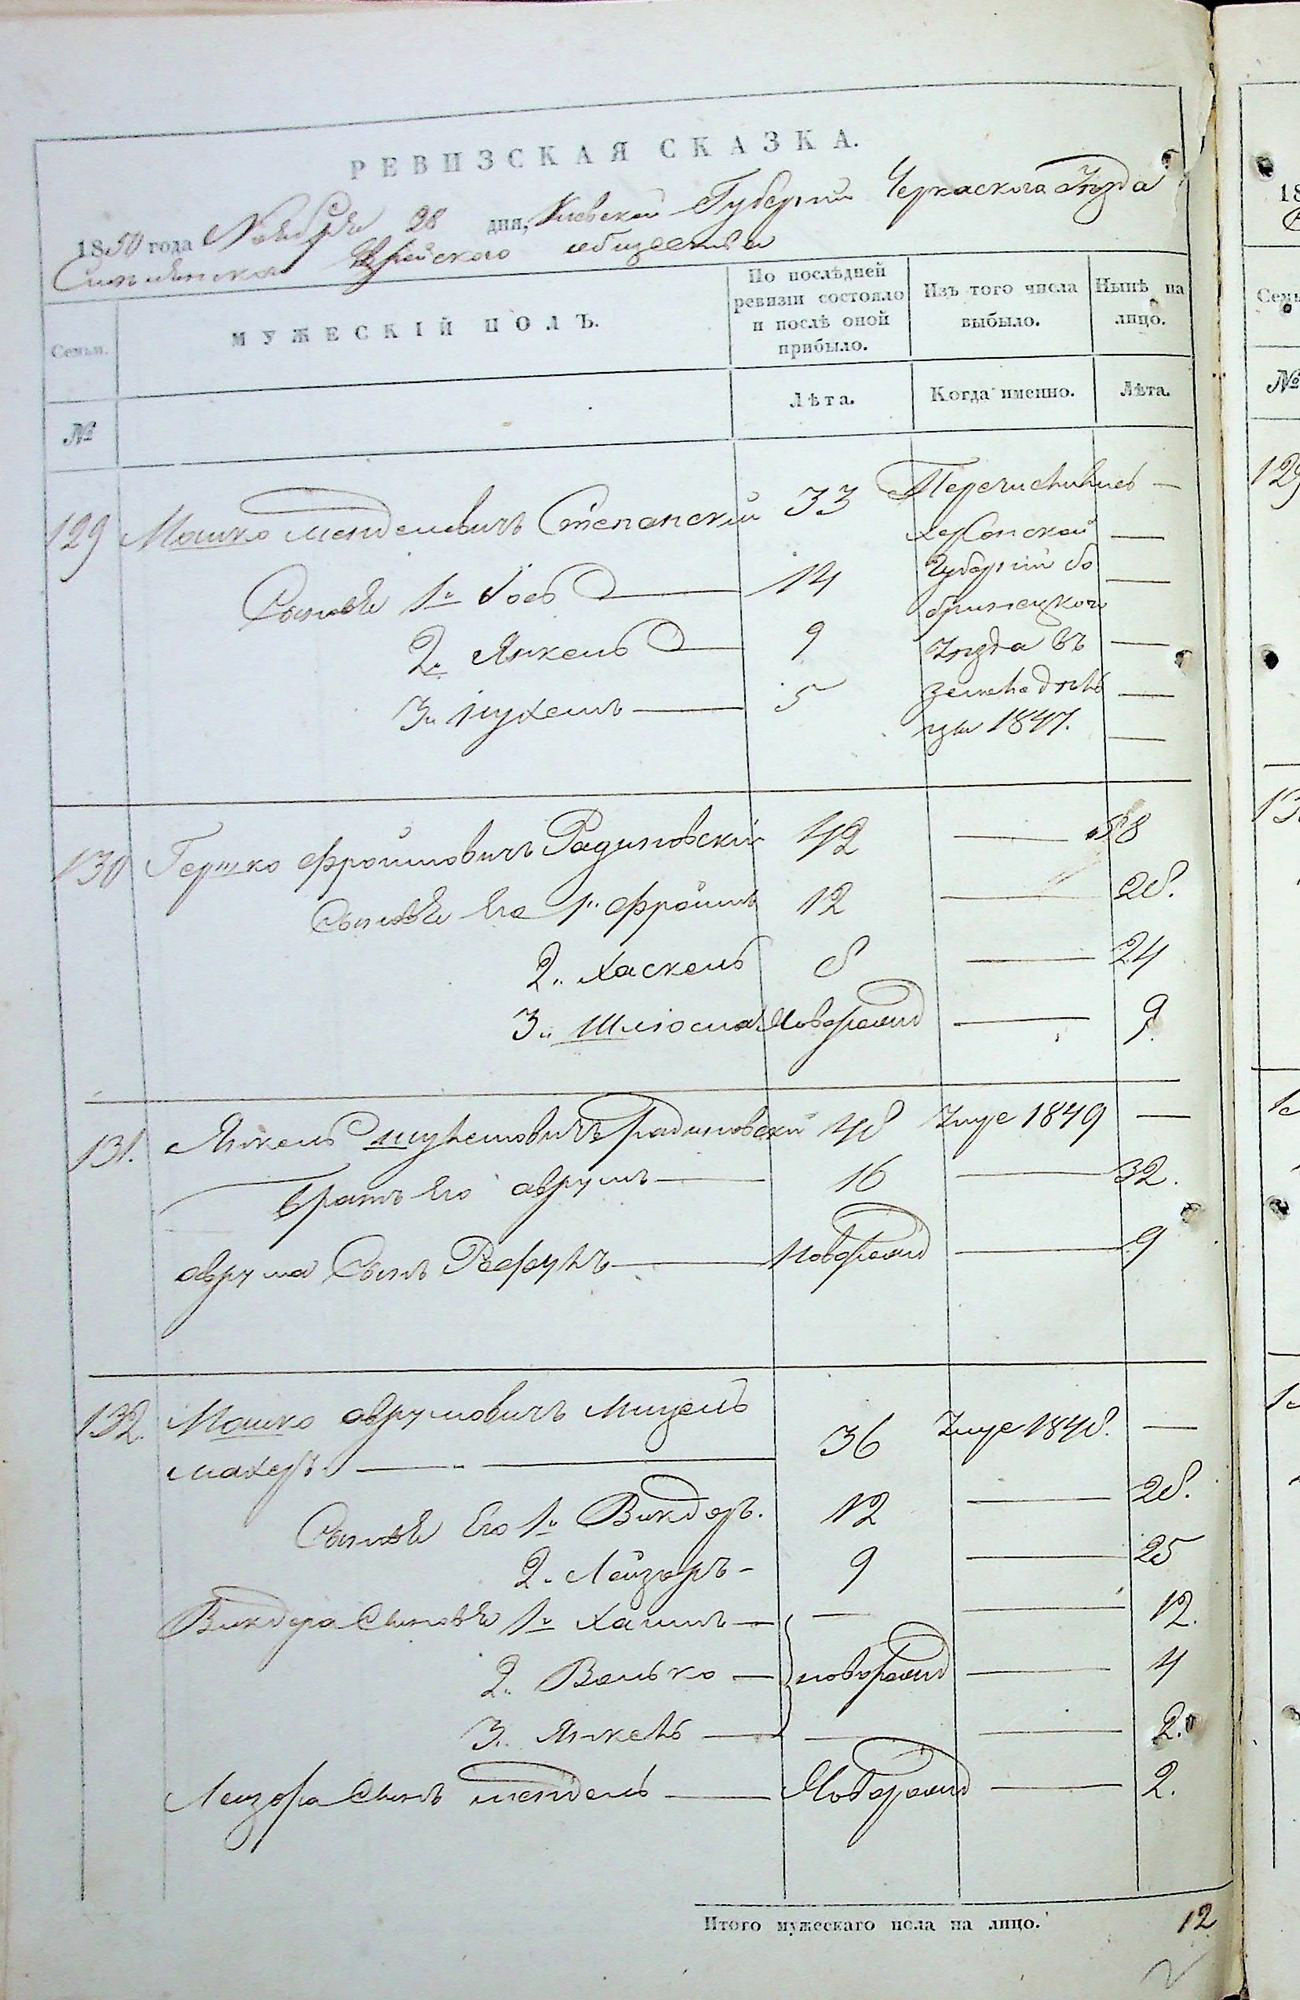 РЕВИЗСКАЯ СКАЗКА.
1850 года Ноября 28 дня, Киевской Губернии Черкаского Уезда
Еврейского общества
Семьи. МУЖЕСКІЙ ПОЛЪ. По послѣдней ревизіи состояло и послѣ оной прибыло. Изъ того числа выбыло. Нынѣ на лицо.
№ Лѣта. Когда именно. Лѣта.
129 Мошко Менделевичъ Степанскій 33 Перечислились —
Херсонской —
Сыновья 1й Іось — 14 Губерніи Бо —
бринецкого
2. Янкель — 9 Уезда въ —
3й Нухемъ — 5 земледѣль —
цы 1847. —
130 Гершко Фроимовичъ Радиновскій 42 — 58
Сыновья Его 1й Фроимъ 12 — 28.
2й Хаскель 8 — 24
3й Шліома Новорожд — 9.
131. Янкель Нухемовичъ Радиновскій 48 Умре 1849 —
Братъ Его Аврумъ — 16 — 32.
Аврума Сынъ Рефулъ — Новорожд — 9
132. Мошко Аврумовичъ Мицель
махеръ — 36 Умре 1848. —
Сыновья Его 1й Викдоръ. 12 — 28.
2й Лейзоръ — 9 — 25
Викдора Сыновья 1й Хаимъ — — — 12.
2. Волько — новорожд — 4
3. Янкель — — — 2.
Лейзора Сынъ Мендель — Новорожд — 2.
Итого мужескаго пола на лицо. 12